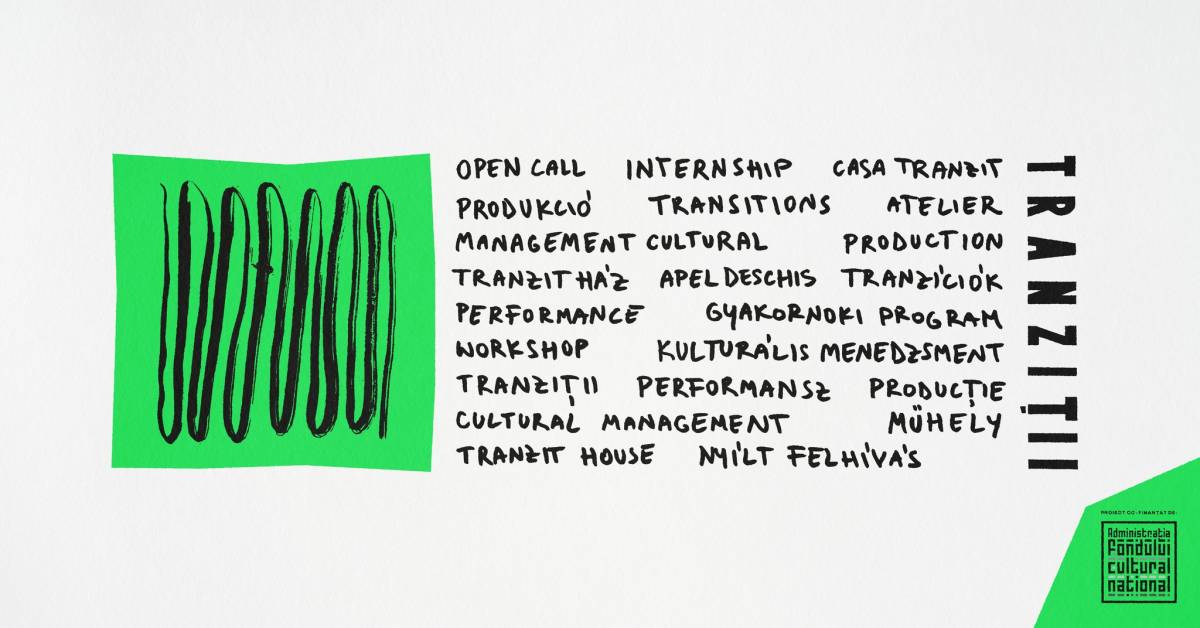 OPEN CALL INTERNSHIP CASA TRANZIT
PRODUKCIÓ TRANSITIONS ATELIER
MANAGEMENT CULTURAL PRODUCTION
TRANZIT HÁZ APEL DESCHIS TRANZÍCIÓK
PERFORMANCE GYAKORNOKI PROGRAM
WORKSHOP KULTURÁLIS MENEDZSMENT
TRANZIȚII PERFORMANSZ PRODUCȚIE
CULTURAL MANAGEMENT MŰHELY
TRANZIT HOUSE NYÍLT FELHÍVÁS
TRANZIȚII
PROIECT CO-FINANȚAT DE:
Administrația
fondului
cultural
național